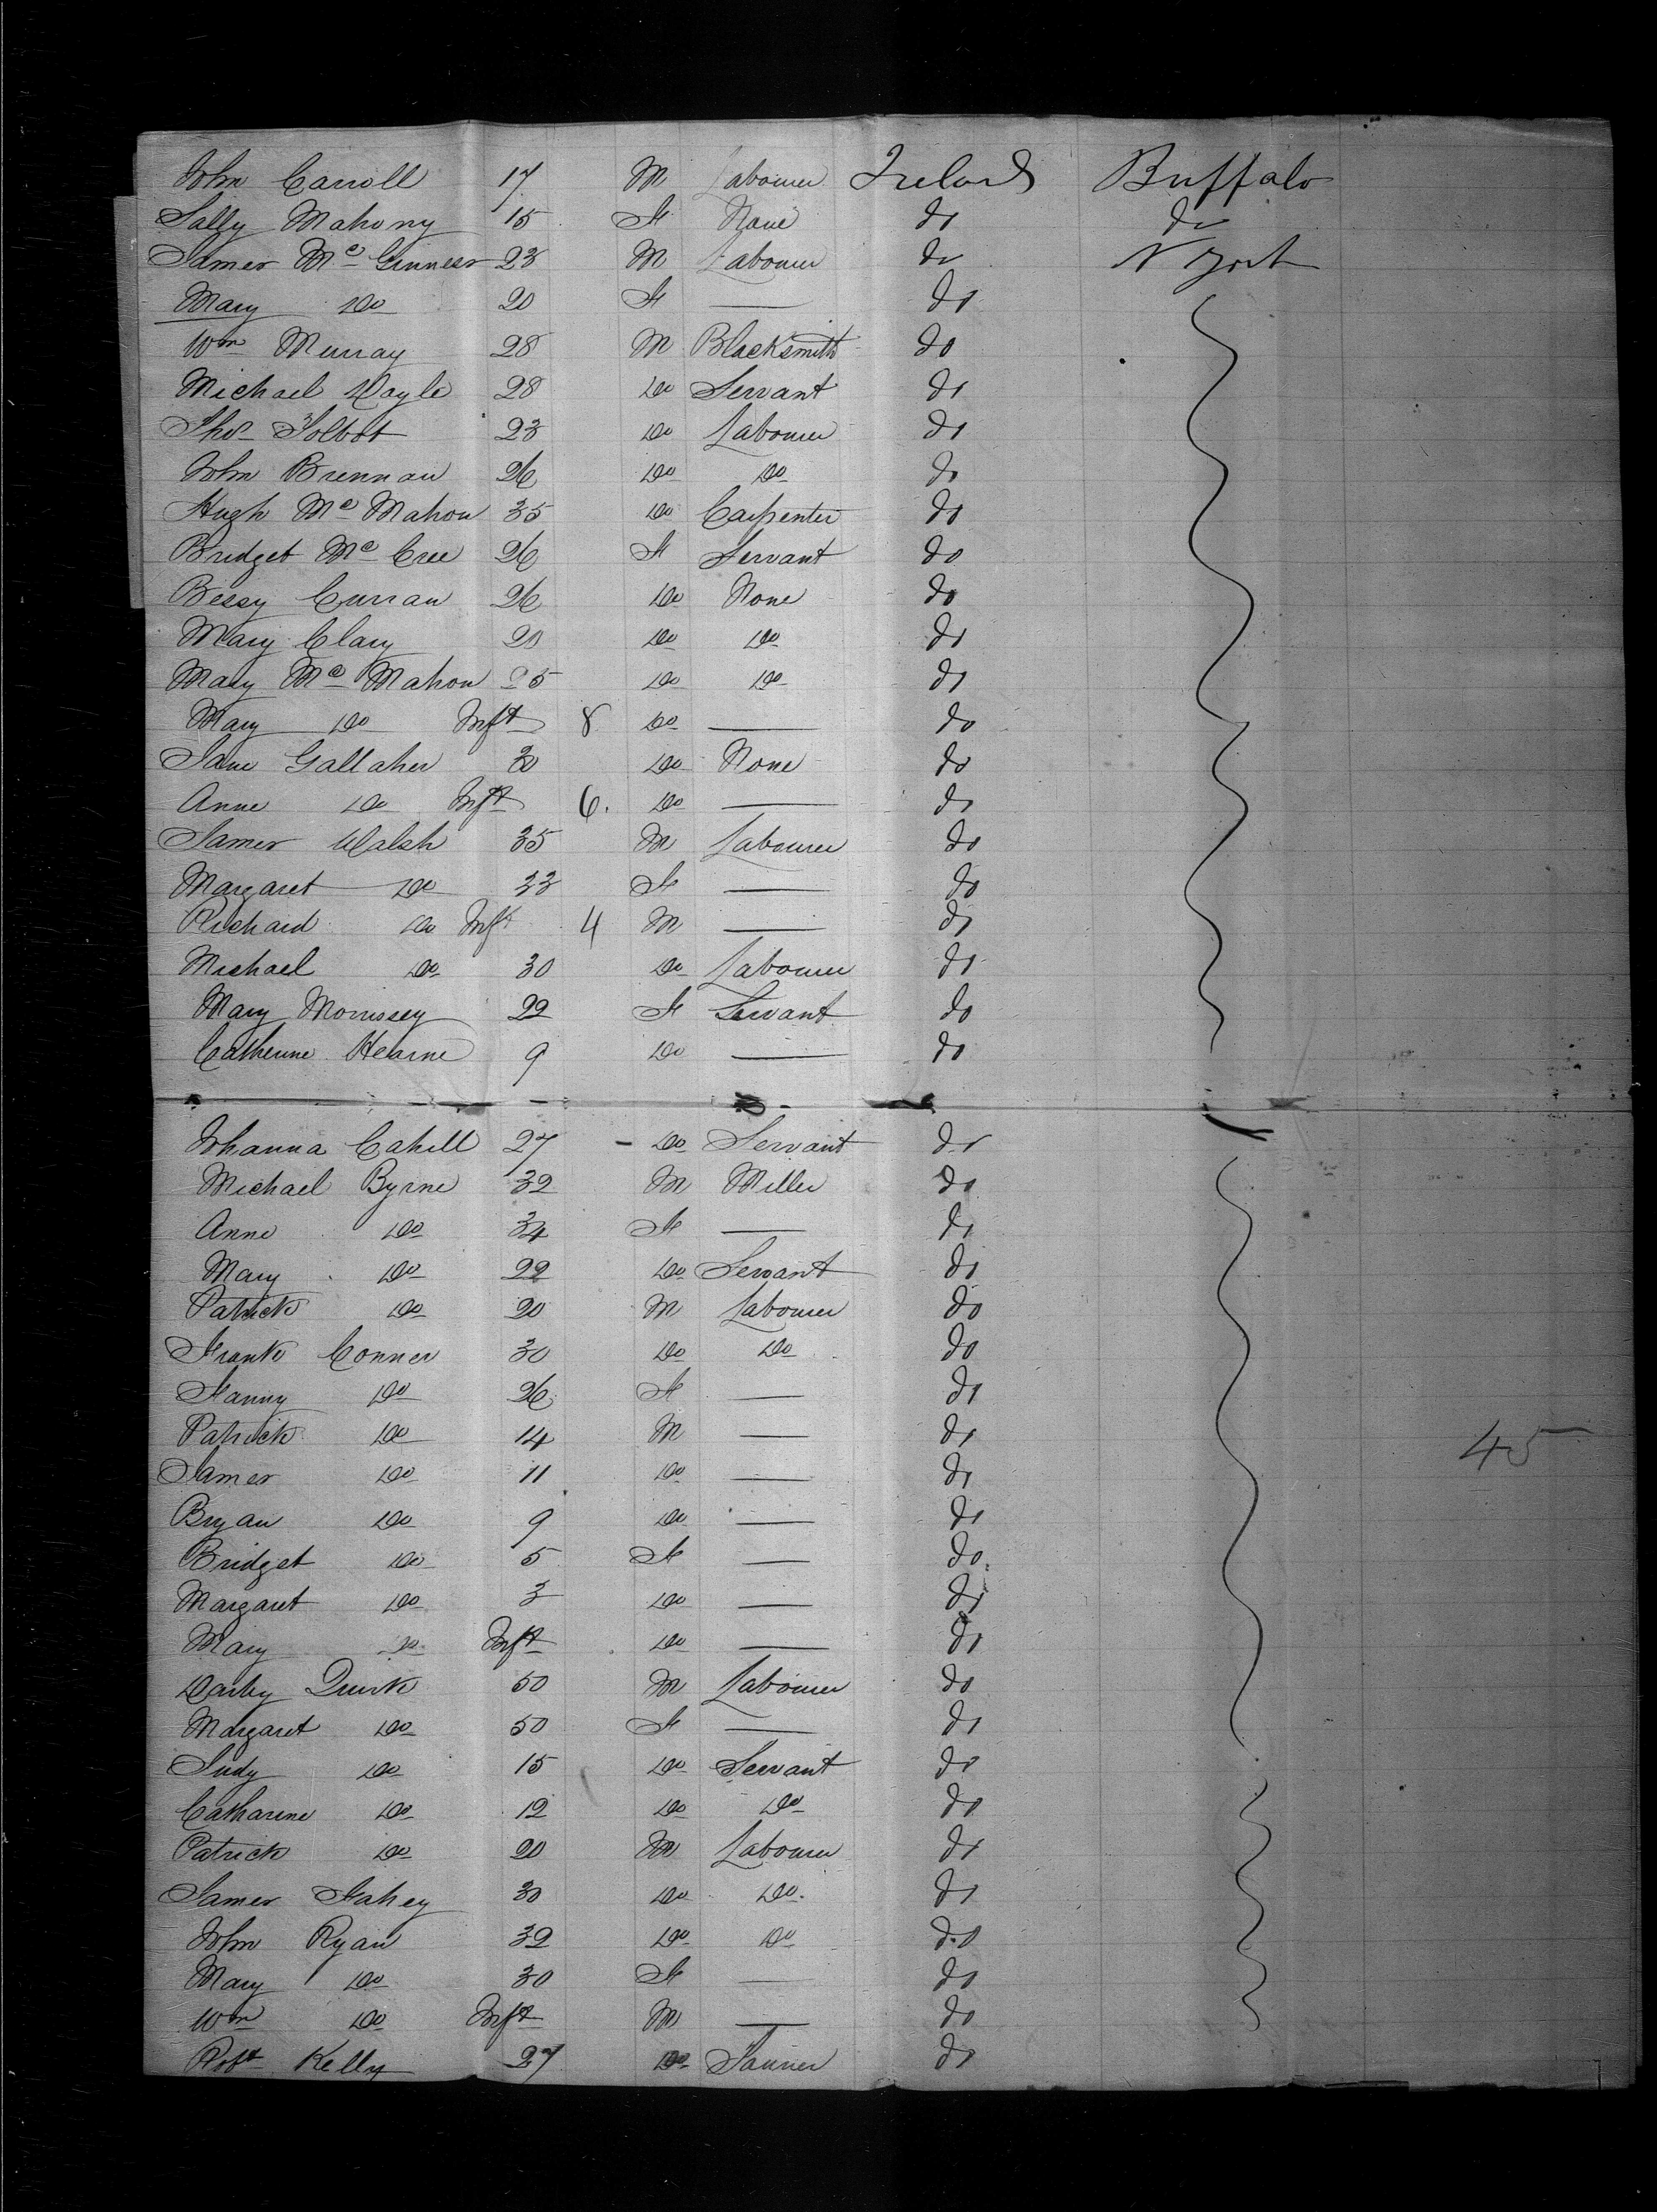 John Carroll 17 M Labourer Ireland Buffalo
Sally Mahony 15 F None do do
James Mc Ginness 23 M Labourer do N York
Mary Do 20 F — do
Wm Murray 28 M Blacksmith do
Michael Doyle 28 Do Servant do
Thos Tolbot 23 Do Labourer do
John Brennan 26 Do Do do
Hugh Mc Mahon 35 Do Carpenter do
Bridget Mc Cree 26 F Servant do
Bessy Curran 26 Do None do
Mary Clary 20 Do Do do
Mary Mc Mahon 25 Do Do do
Mary Do Inft 8 Do — do
Jane Gallaher 30 Do None do
Anne Do Inft 6. Do — do
James Walsh 35 M Labourer do
Margaret Do 33 F — do
Richard Do Inft 4 M — do
Michael Do 30 Do Labourer do
Mary Morrissey 22 F Servant do
Catherine Hearne 9 Do — do
Johanna Cahill 27 Do Servant do
Michael Byrne 32 M Miller do
Anne Do 34 F — do
Mary Do 22 Do Servant do
Patrick Do 20 M Labourer do
Frank Conner 30 Do Do do
Fanny Do 26 F — do
Patrick Do 14 M — do 45
James Do 11 Do — do
Bryan Do 9 Do — do
Bridget Do 5 F — do
Margaret Do 3 Do — do
Mary Do Inft Do — do
Darby Quirk 50 M Labourer do
Margaret Do 50 F — do
Judy Do 15 Do Servant do
Catharine Do 12 Do Do do
Patrick Do 20 M Labourer do
James Fahey 30 Do Do. do
John Ryan 32 Do Do do
Mary Do 30 F — do
Wm Do Inft M — do
Robt Kelly 27 Do Tanner do